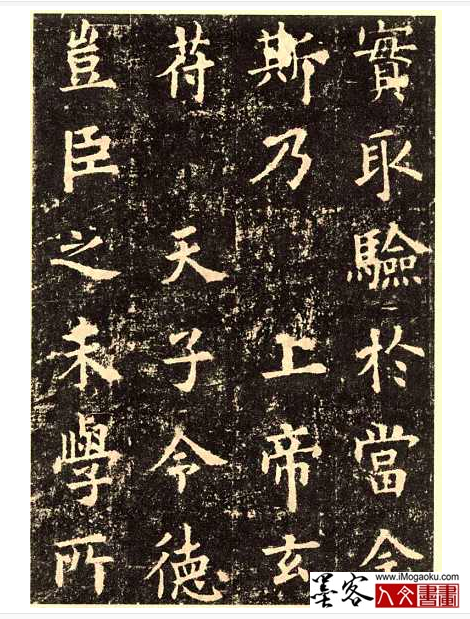 實取驗於當今
斯乃上帝玄
苻天子令德
豈臣之末學所
墨客
www.iMogaoku.com
人文書畫